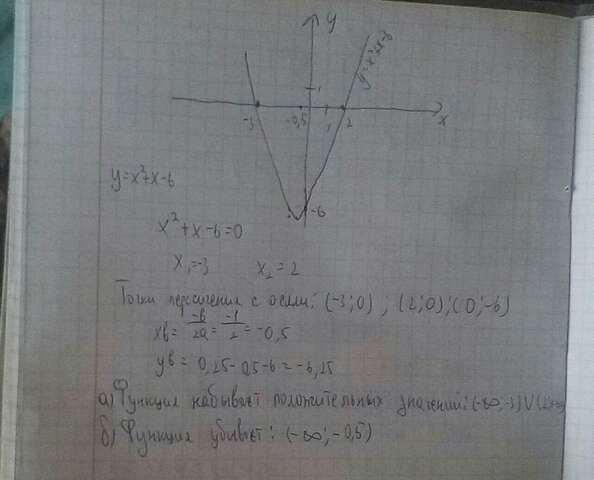 y
y=x²+x-6
1
-3 -0,5 1 2 x
-6
y=x²+x-6
x²+x-6=0
x₁=-3 x₂=2
Точки персичения с осями: (-3;0) ; (2;0); (0;-6)
xв= -b/2a = -1/2 = -0,5
yв= 0,25-0,5-6=-6,25
а) Функция набывает положительных значений: (-∞;-3)∪(2;+∞)
б) Функция убывает: (-∞;-0,5)